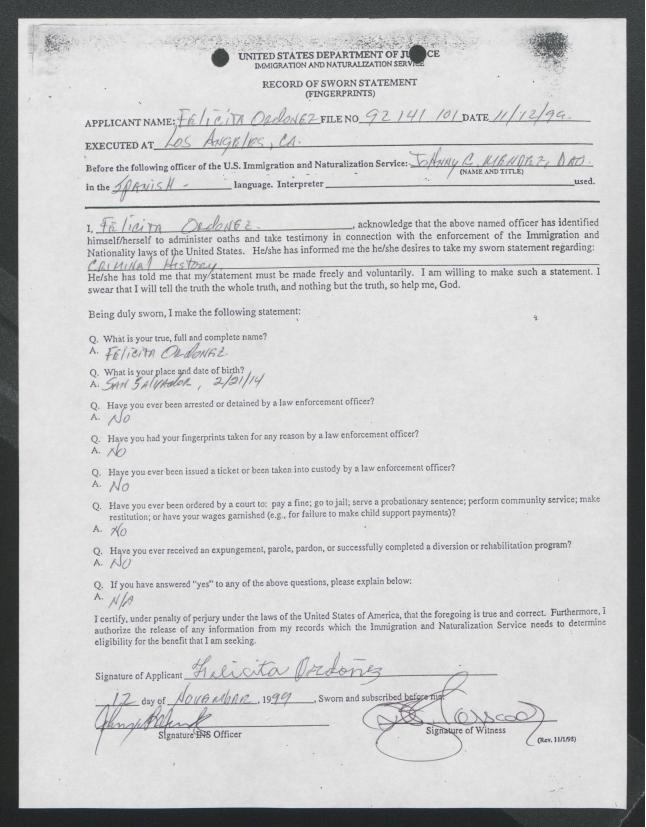 UNITED STATES DEPARTMENT OF JUSTICE
IMMIGRATION AND NATURALIZATION SERVICE
RECORD OF SWORN STATEMENT
(FINGERPRINTS)
APPLICANT NAME: Felicita Ordonez FILE NO 92 141 101 DATE 11/12/99.
EXECUTED AT Los Angeles, CA.
Before the following officer of the U.S. Immigration and Naturalization Service: Johnny G. Mendez, DAO.
(NAME AND TITLE)
in the Spanish - language. Interpreter used.
I, Felicita Ordonez. , acknowledge that the above named officer has identified
himself/herself to administer oaths and take testimony in connection with the enforcement of the Immigration and
Nationality laws of the United States. He/she has informed me the he/she desires to take my sworn statement regarding:
Criminal History
He/she has told me that my statement must be made freely and voluntarily. I am willing to make such a statement. I
swear that I will tell the truth the whole truth, and nothing but the truth, so help me, God.
Being duly sworn, I make the following statement:
Q. What is your true, full and complete name?
A. Felicita Ordonez
Q. What is your place and date of birth?
A. San Salvador, 2/21/14
Q. Have you ever been arrested or detained by a law enforcement officer?
A. No
Q. Have you had your fingerprints taken for any reason by a law enforcement officer?
A. No
Q. Have you ever been issued a ticket or been taken into custody by a law enforcement officer?
A. No
Q. Have you ever been ordered by a court to: pay a fine; go to jail; serve a probationary sentence; perform community service; make
restitution; or have your wages garnished (e.g., for failure to make child support payments)?
A. No
Q. Have you ever received an expungement, parole, pardon, or successfully completed a diversion or rehabilitation program?
A. No
Q. If you have answered "yes" to any of the above questions, please explain below:
A. N/A
I certify, under penalty of perjury under the laws of the United States of America, that the foregoing is true and correct. Furthermore, I
authorize the release of any information from my records which the Immigration and Naturalization Service needs to determine
eligibility for the benefit that I am seeking.
Signature of Applicant Felicita Ordoñez
12 day of November, 1999 , Sworn and subscribed before me:
Signature INS Officer
Signature of Witness
(Rev. 11/1/98)